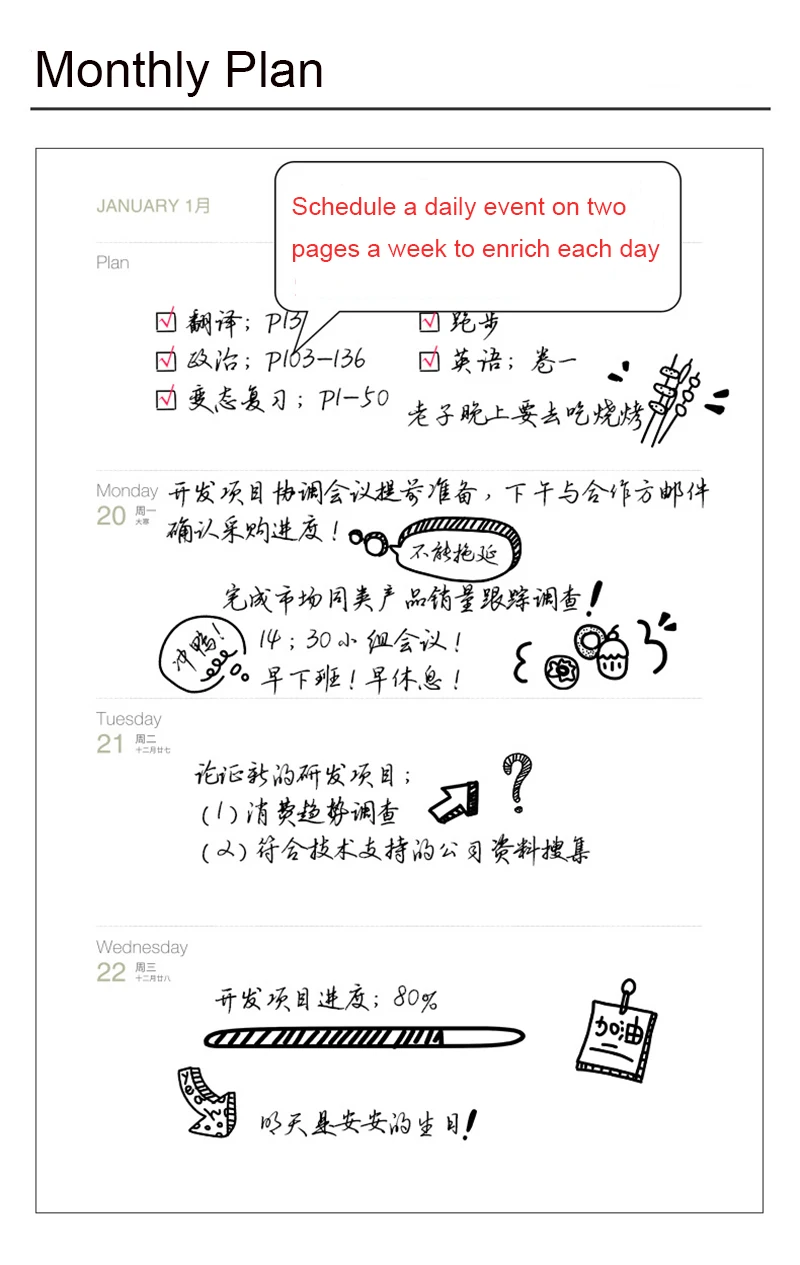 Monthly Plan
JANUARY 1月
Schedule a daily event on two
pages a week to enrich each day
Plan
翻译; P13
跑步
政治; P103-136
英语; 卷一
变态复习; P1-50
老子晚上要去吃烧烤
Monday
20 周一
大寒
开发项目协调会议提前准备, 下午与合作方邮件
确认采购进度!
不能拖延
完成市场同类产品销量跟踪调查!
冲鸭!
14; 30小组会议!
早下班! 早休息!
Tuesday
21 周二
十二月廿七
论证新的研发项目;
(1) 消费趋势调查
(2) 符合技术支持的公司资料搜集
Wednesday
22 周三
十二月廿八
开发项目进度; 80%
加油
明天是安安的生日!